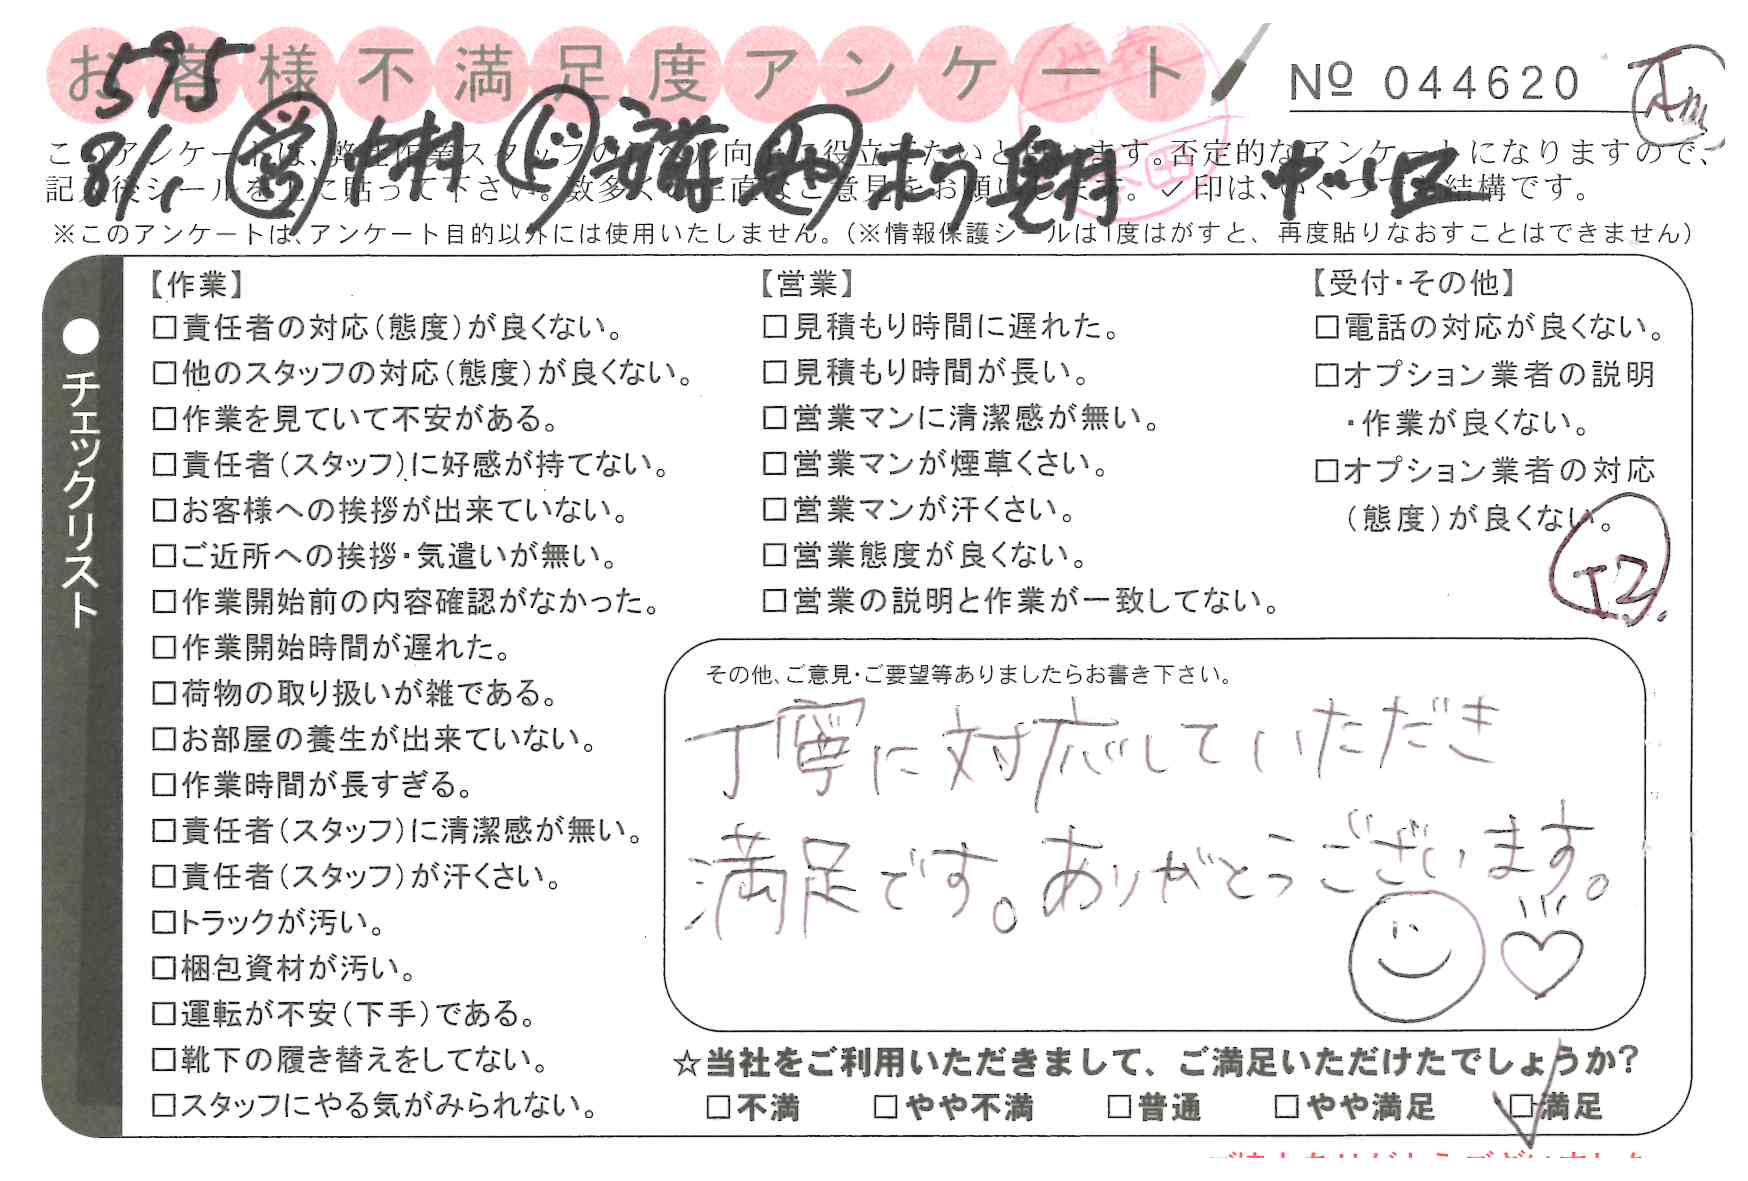 お客様不満足度アンケート
№ 044620
Am
575
8/1 営 中村 ド 安藤 や ホラ 奥村 中川区
このアンケートは、弊社作業スタッフのレベル向上に役立てたいと思います。否定的なアンケートになりますので、
記入後シールを上に貼って下さい。数多くの正直なご意見をお願いします。✓印は、いくつでも結構です。
※このアンケートは、アンケート目的以外には使用いたしません。（※情報保護シールは1度はがすと、再度貼りなおすことはできません）
●チェックリスト
【作業】
□責任者の対応（態度）が良くない。
□他のスタッフの対応（態度）が良くない。
□作業を見ていて不安がある。
□責任者（スタッフ）に好感が持てない。
□お客様への挨拶が出来ていない。
□ご近所への挨拶・気遣いが無い。
□作業開始前の内容確認がなかった。
□作業開始時間が遅れた。
□荷物の取り扱いが雑である。
□お部屋の養生が出来ていない。
□作業時間が長すぎる。
□責任者（スタッフ）に清潔感が無い。
□責任者（スタッフ）が汗くさい。
□トラックが汚い。
□梱包資材が汚い。
□運転が不安（下手）である。
□靴下の履き替えをしてない。
□スタッフにやる気がみられない。
【営業】
□見積もり時間に遅れた。
□見積もり時間が長い。
□営業マンに清潔感が無い。
□営業マンが煙草くさい。
□営業マンが汗くさい。
□営業態度が良くない。
□営業の説明と作業が一致してない。
【受付・その他】
□電話の対応が良くない。
□オプション業者の説明
・作業が良くない。
□オプション業者の対応
（態度）が良くない。
I2.
その他、ご意見・ご要望等ありましたらお書き下さい。
丁寧に対応していただき
満足です。ありがとうございます。
☆当社をご利用いただきまして、ご満足いただけたでしょうか？
□不満 □やや不満 □普通 □やや満足 ☑満足